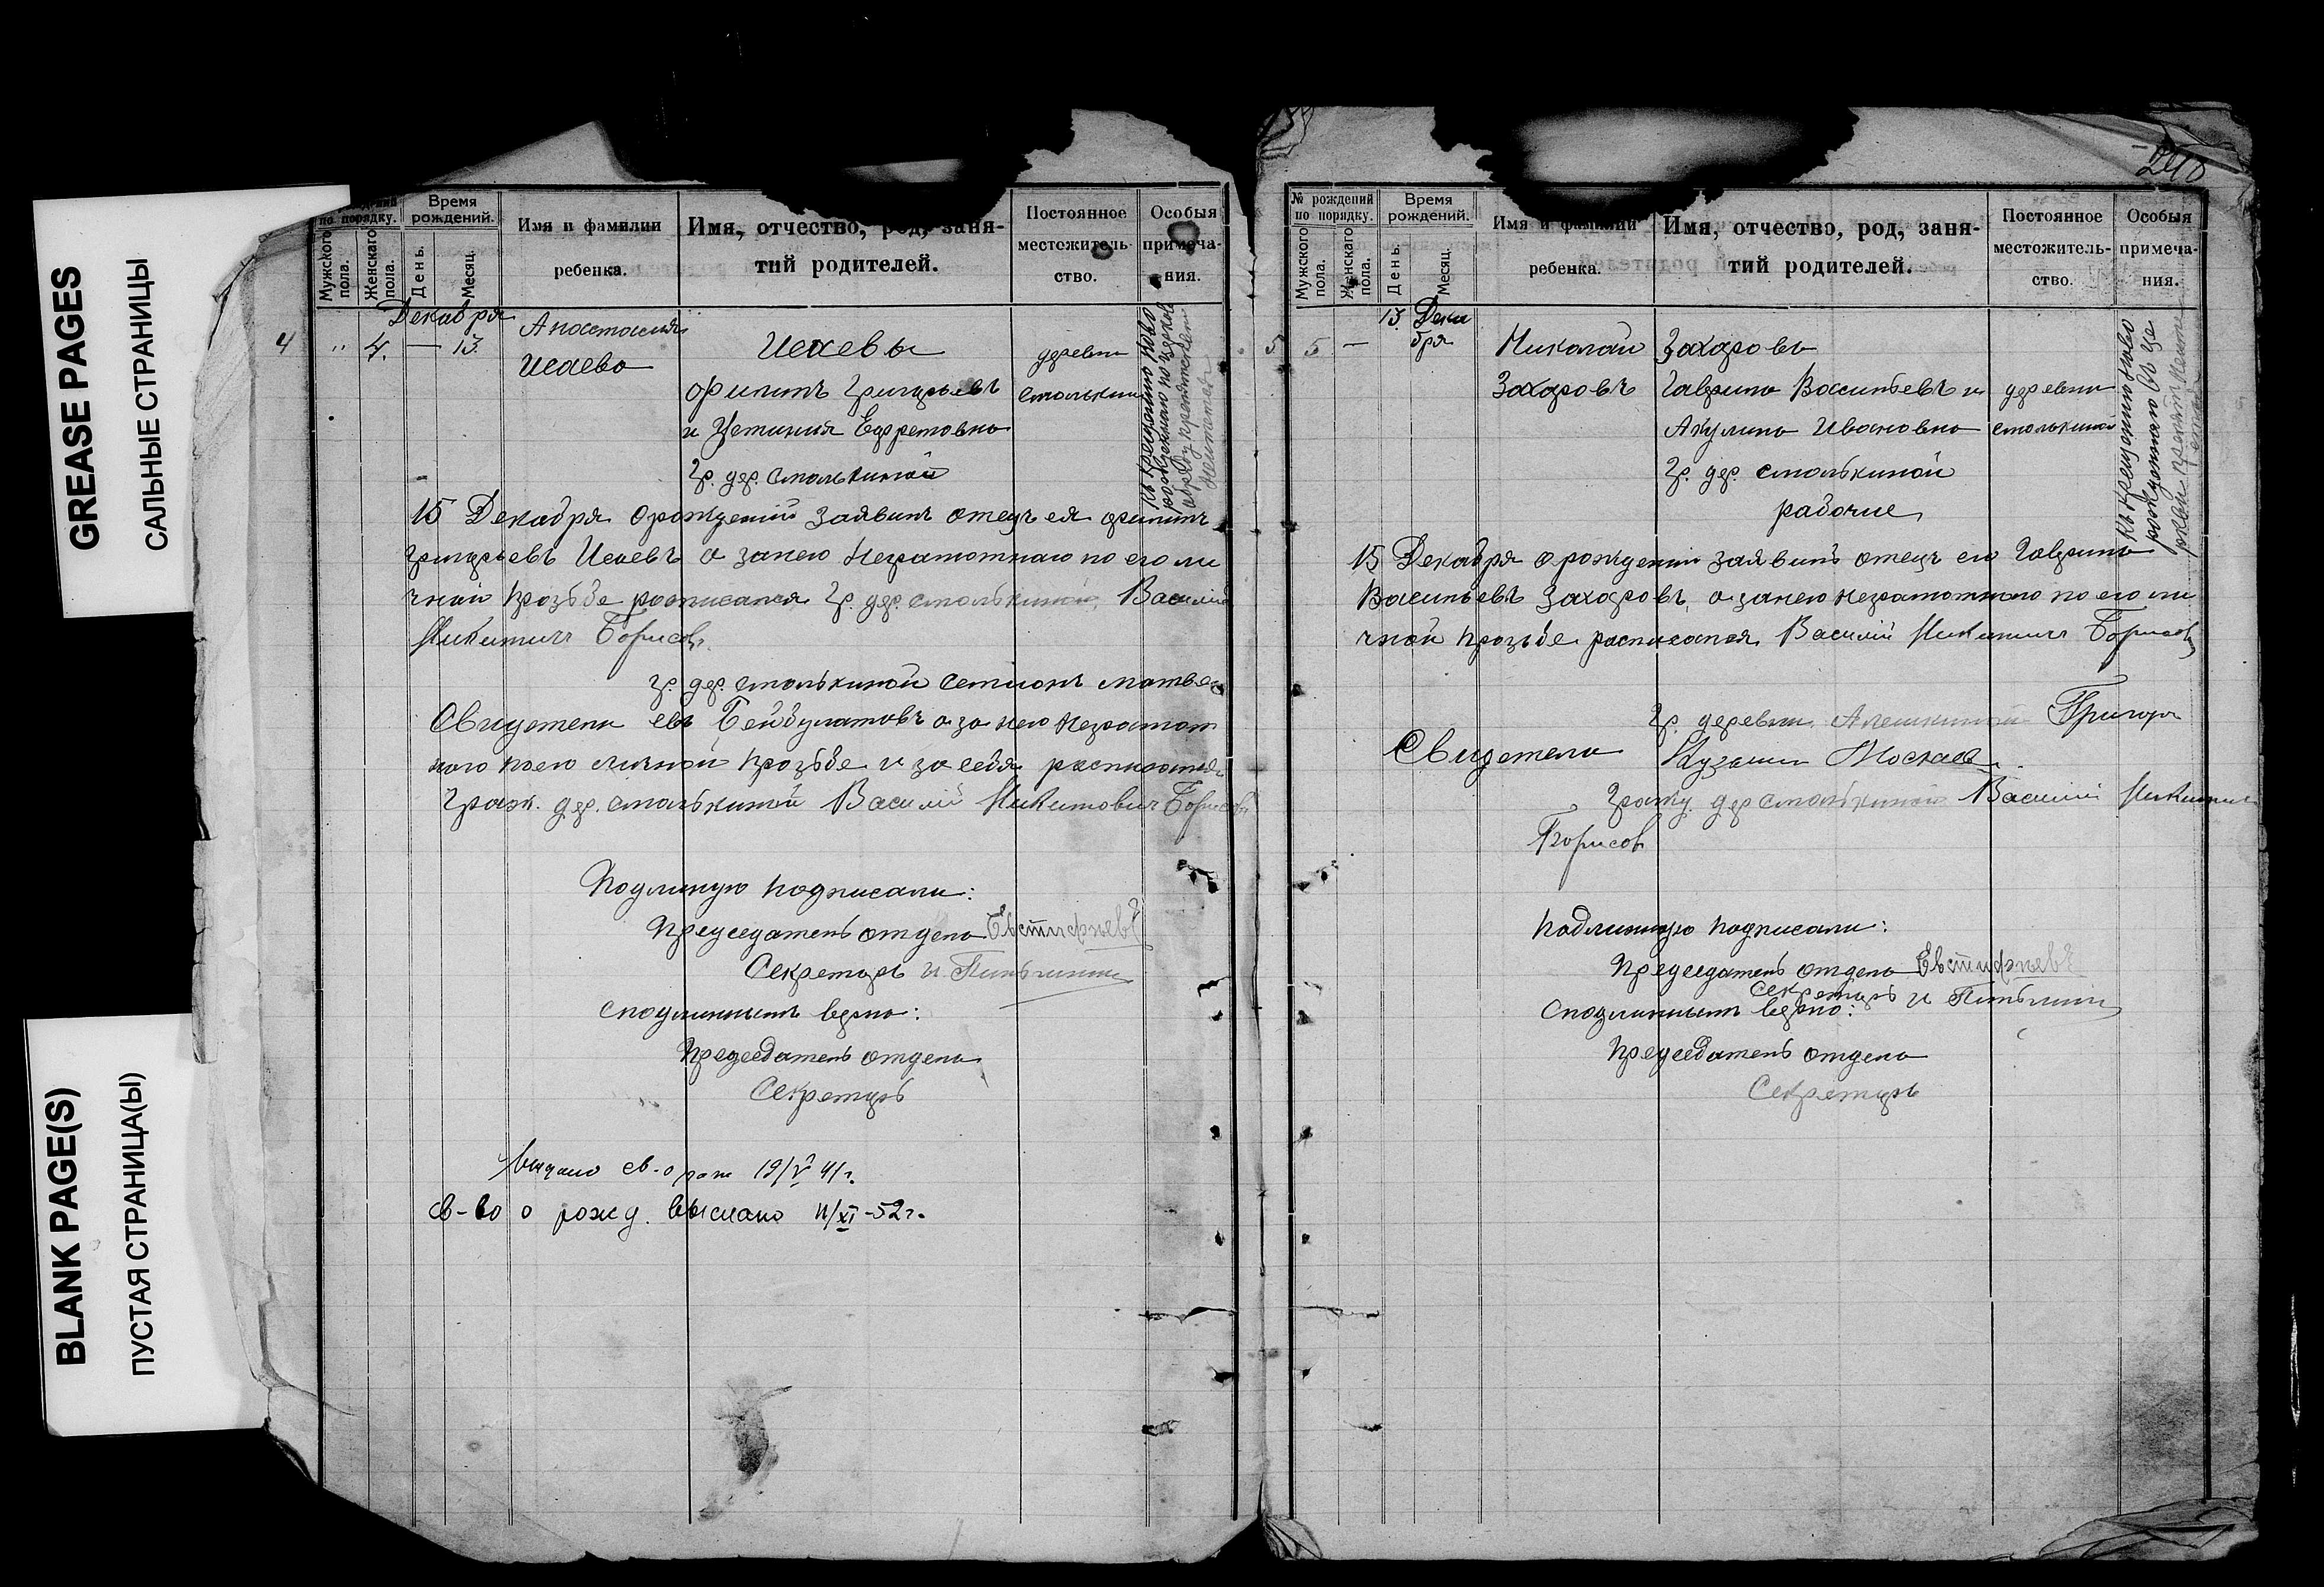 GREASE PAGES
САЛЬНЫЕ СТРАНИЦЫ
BLANK PAGE(S)
ПУСТАЯ СТРАНИЦА(Ы)
по порядку.
Мужского пола.
Женскаго пола.
Время рождений.
День.
Месяц.
Имя и фамилии ребенка.
Имя, отчество, род, заня-
тий родителей.
Постоянное
местожитель-
ство.
Особыя
примеча-
ния.
4 " 4. — 13. Декабря
Анастасия
Исаева
Исаевы
Филипъ Григорьевъ
и Устиния Ефремовна
гр. дер. Смолькиной
деревни
Смолькиной
15 Декабря о рождении заявилъ отецъ ея Филипъ
Григорьевъ Исаевъ а занею неграмотнаго по его ли
чной прозьбе росписался гр. дер. Смолькиной, Василий
Никитичъ Борисовъ.
гр. дер. Смолькиной Семионъ Матве
Свидетели евъ Бейбулатовъ а за нею неграмот
ного поею личной прозьбе и за себя расписался
Граж. дер. Смолькиной Василий Никитович Борисовъ
Подлиную подписали:
Председатель отдела Евстифеевъ
Секретарь И.
Сподлинным верно:
Председатель отдела
Секретарь
Выдано св. о рож 19/V 41г.
св-во о рожд. выслано 11/XI-52г.
240
№ рождений
по порядку.
Мужского пола.
Женскаго пола.
Время рождений.
День.
Месяц.
Имя и фамилии
ребенка.
Имя, отчество, род, заня-
тий родителей.
Постоянное
местожитель-
ство.
Особыя
примеча-
ния.
5 5 — 13. Дека
бря
Николай
Захаровъ
Захаровы
Гаврила Васильевъ и
Акулина Ивановна
гр. дер. Смолькиной
рабочие
деревни
Смолькиной
15 Декабря о рождении заявилъ отецъ его Гаврила
Васильевъ Захаровъ, а занею неграмотного по его ли
чной прозьбе расписался Василий Никитичъ Борисовъ
гр. деревни Алешкиной Григорий
Свидетели
Кузьмич
Гражд. дер Смолькиной Василий Никитич
Борисов
Подлинную подписали:
Председатель отдела Евстифеевъ
Секретарь И
Сподлинным верно:
Председатель отдела
Секретарь